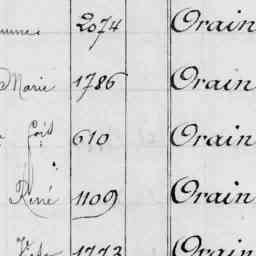 2074 Orain
Marie 1786 Orain
610 Orain
René 1109 Orain
1773 Orain